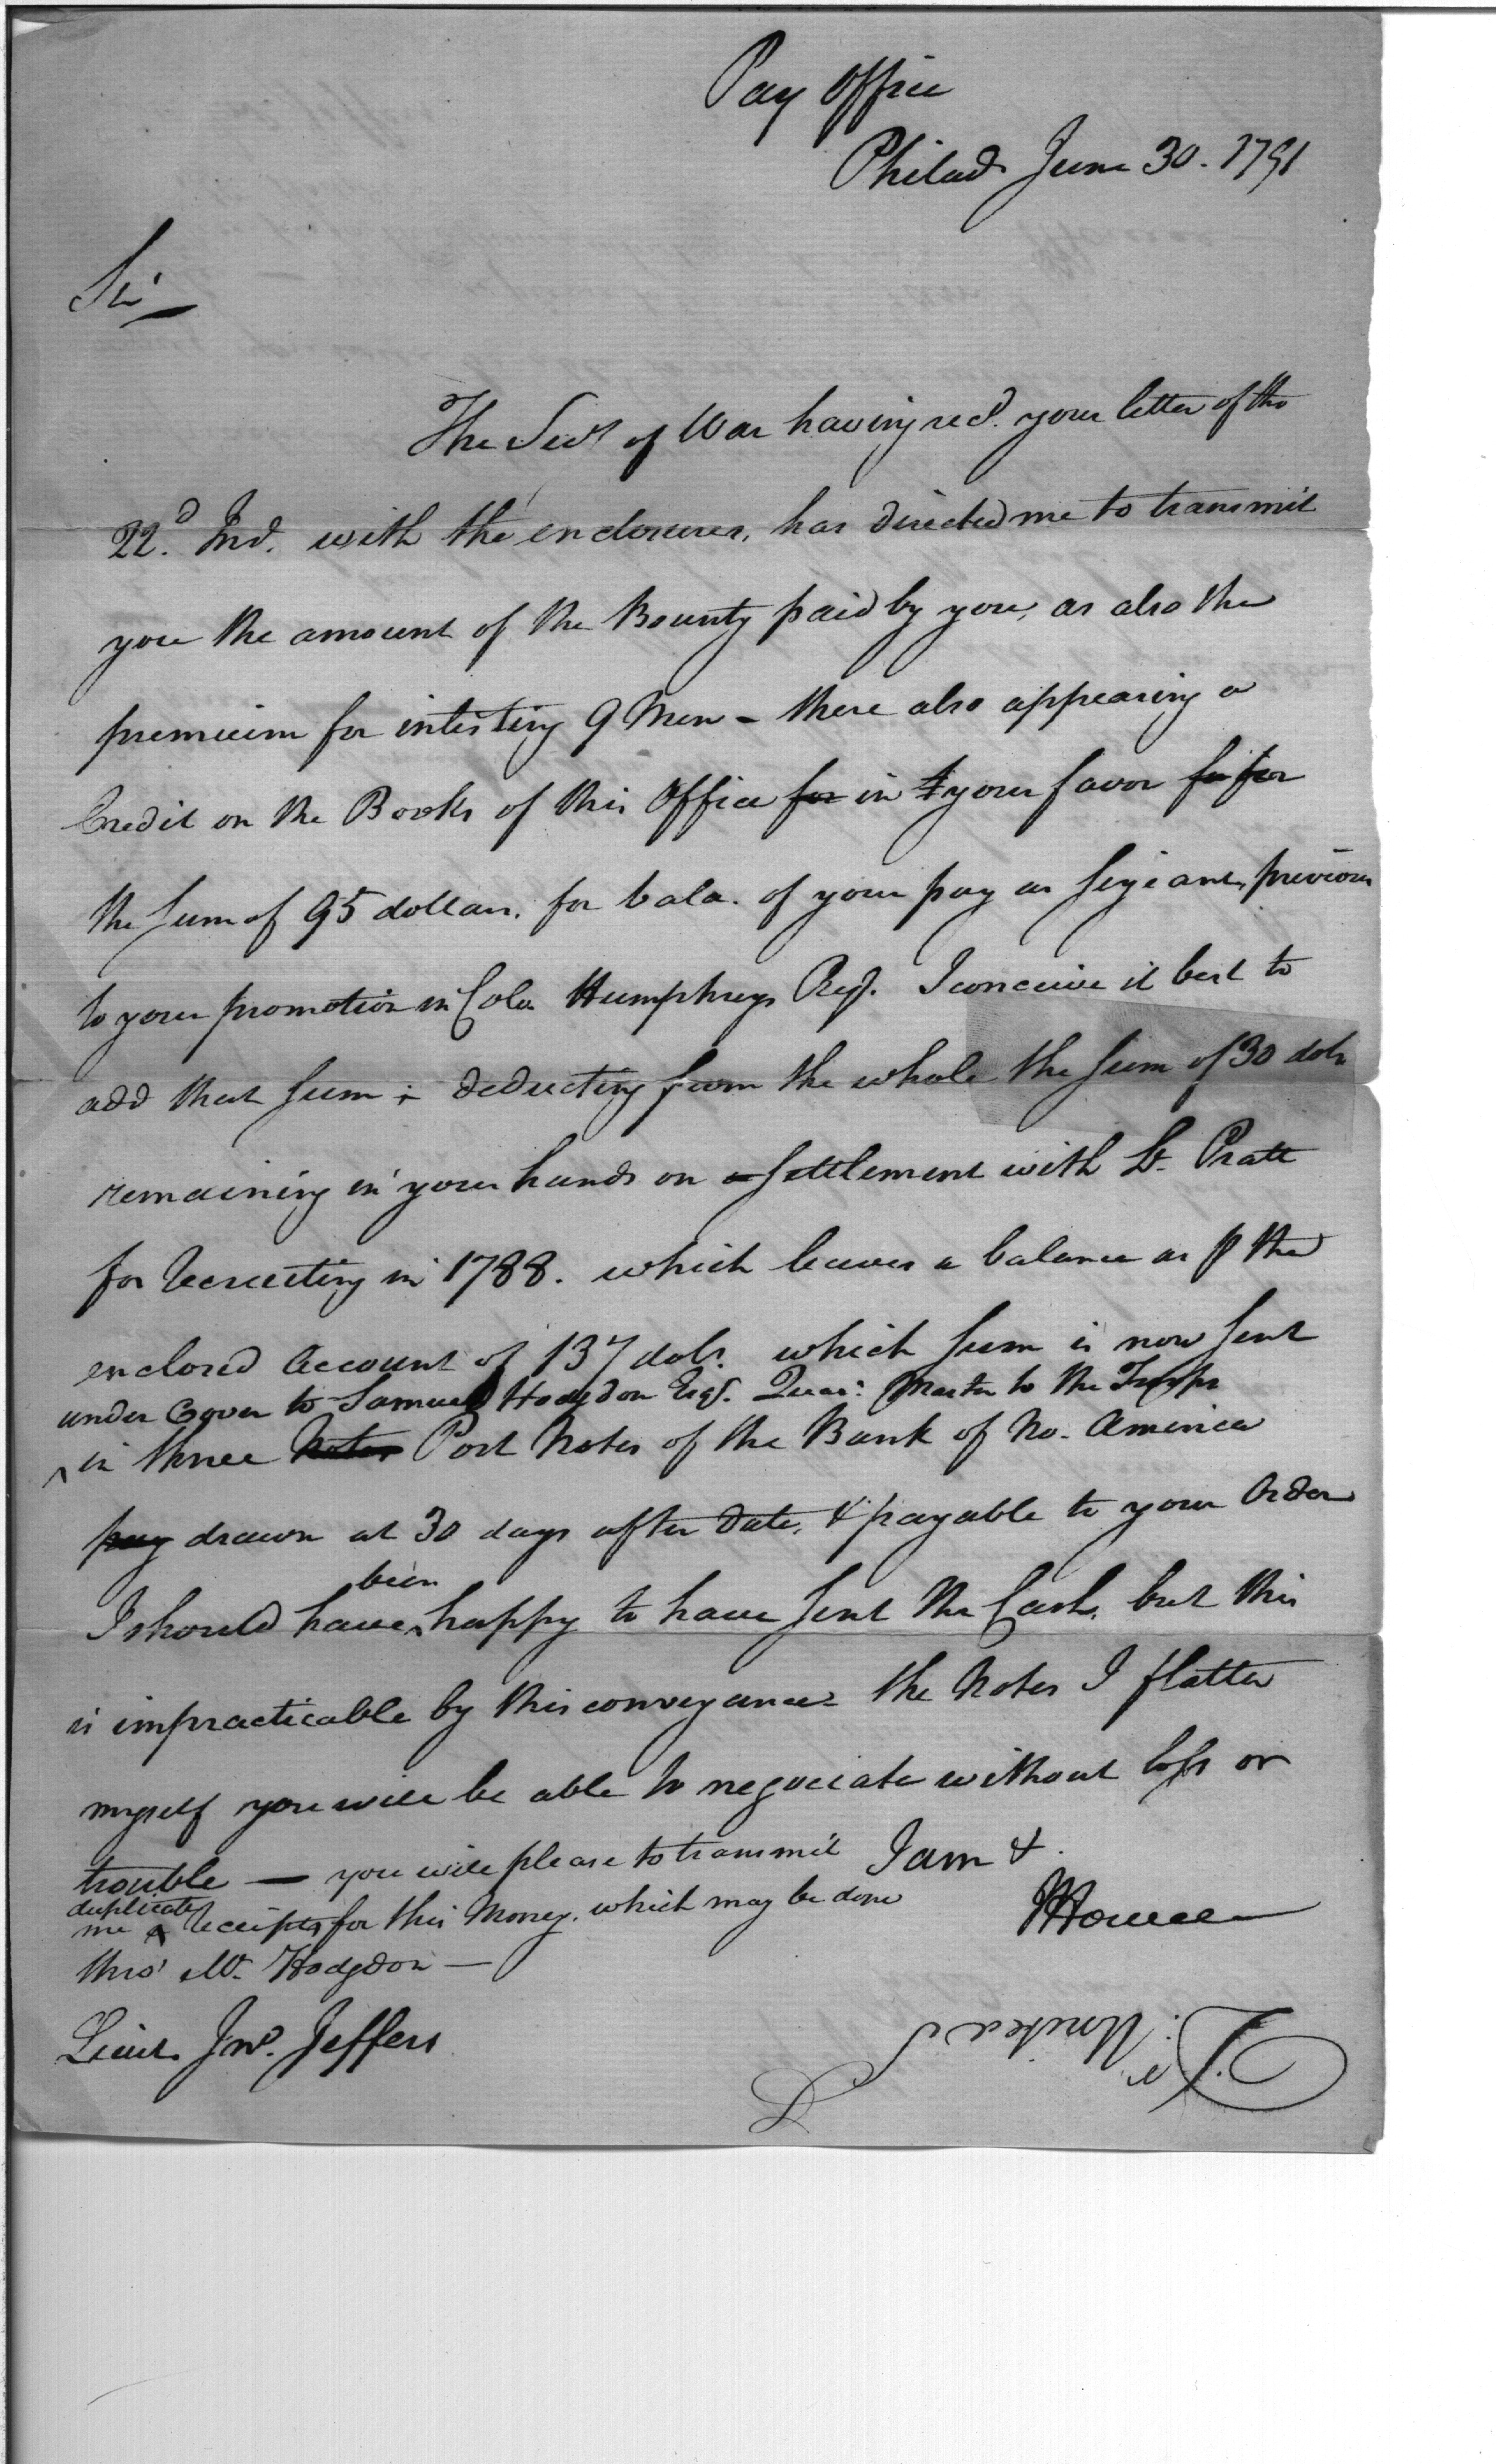 Pay Office
Philad. June 30. 1791
Sir
The Secy of War having recd. your letter of the
22d. Inst. with the enclosures, has directed me to transmit
you the amount of the Bounty paid by you, as also the
premium for inlisting 9 Men - there also appearing a
Credit on the Books of this Office for in your favor for for
the sum of 95 dollars. for bala. of your pay as serjeant, previous
to your promotion in Colo. Humphreys Regt. I conceive it best to
add that sum; deducting from the whole the sum of 30 dols
remaining in your hands on a settlement with Lt. Pratt
for recruiting in 1788. which leaves a balance as p the
enclosed Account of 137 dols. which sum is now sent
under Cover to Samuel Hodgdon Esqr. Quar. Master to the Troops
in three Notes Post Notes of the Bank of No. America
pay drawn at 30 days after date, & payable to your Order
I should have been happy to have sent the Cash, but this
is impracticable by this conveyance the Notes I flatter
myself you will be able to negociate without loss or
trouble — you will please to transmit I am &.
me a duplicate receipts for this Money. which may be done
JHowell
thro' Mr. Hodgdon —
Lieut. Jno. Jeffers
The United S